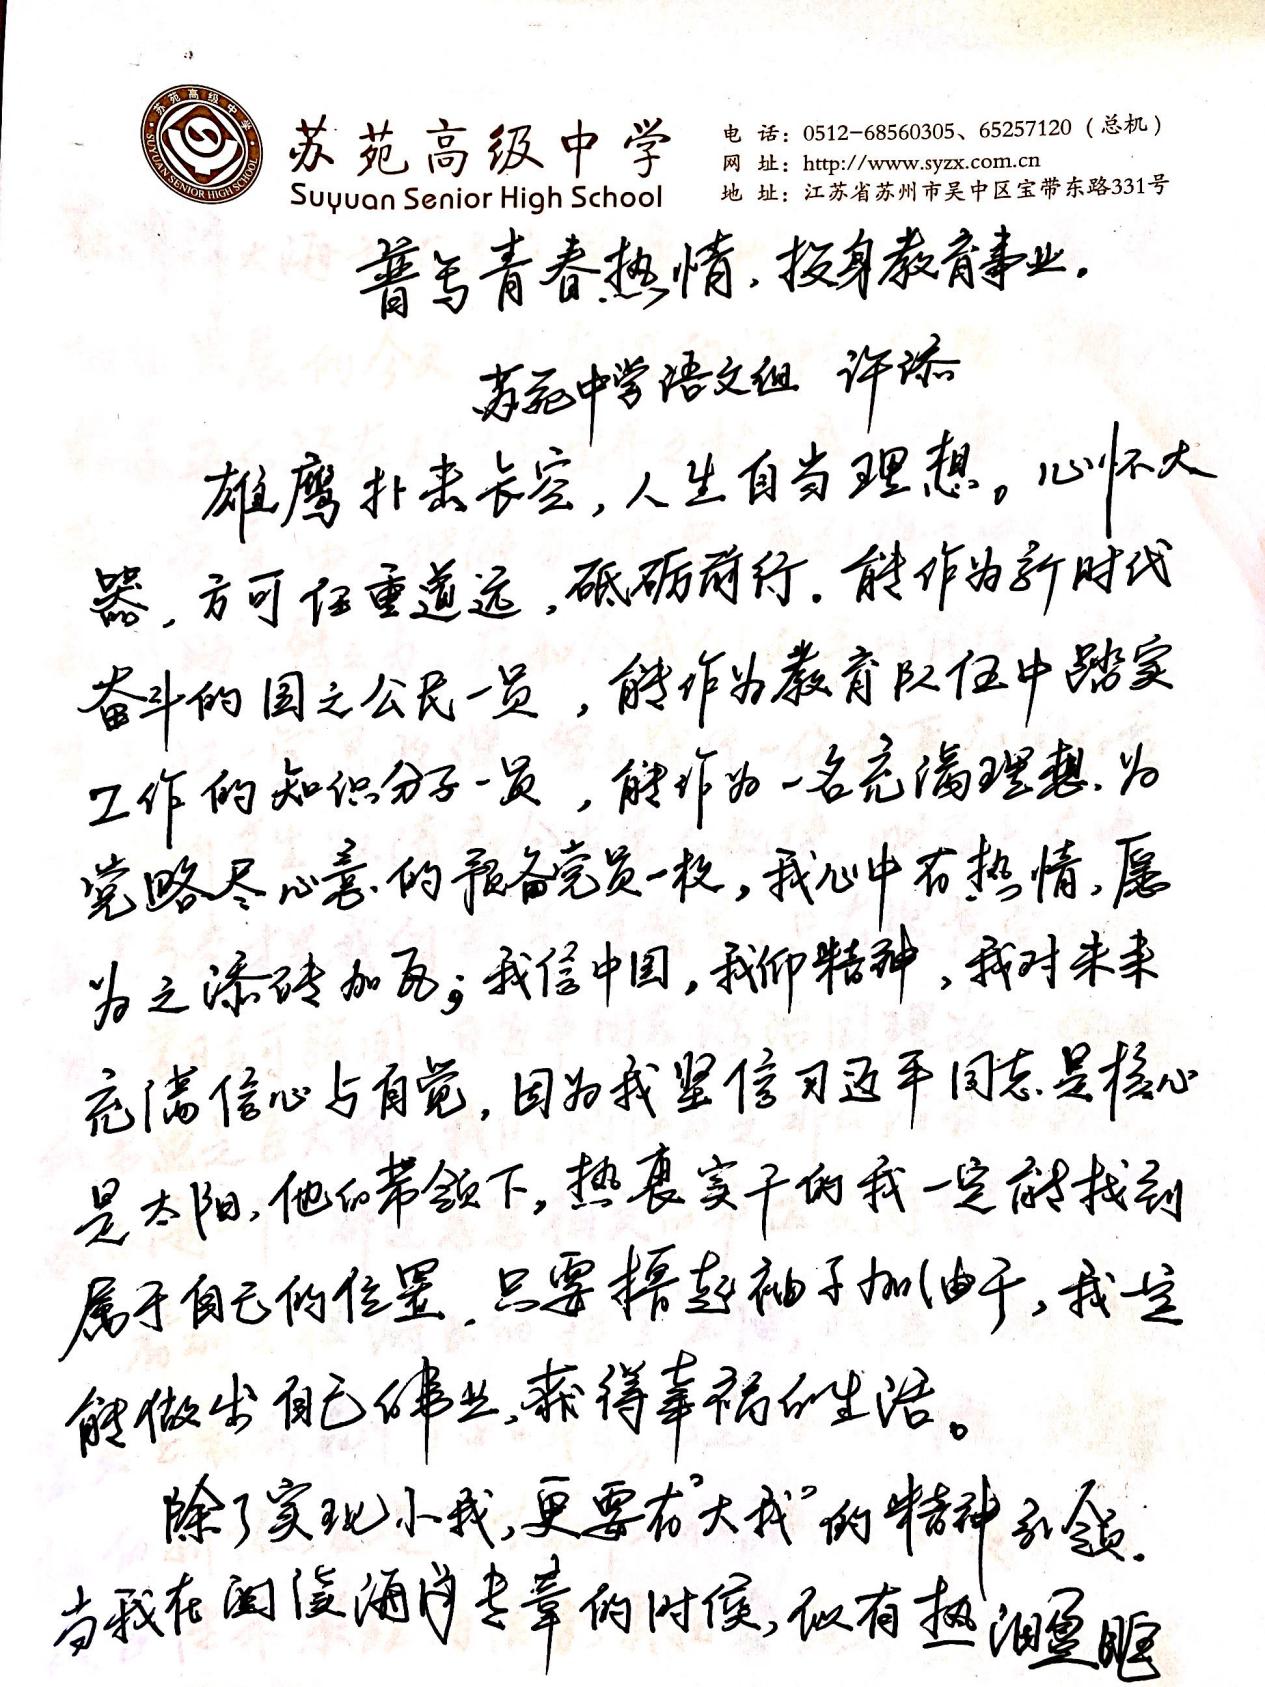 苏苑高级中学
SUYUAN SENIOR HIGH SCHOOL
苏苑高级中学
Suyuan Senior High School
电 话：0512-68560305、65257120（总机）
网 址：http://www.syzx.com.cn
地 址：江苏省苏州市吴中区宝带东路331号
普写青春热情，投身教育事业。
苏苑中学语文组 许添
雄鹰扑来长空，人生自当理想。心怀大
器，方可任重道远，砥砺前行。能作为新时代
奋斗的国之公民一员，能作为教育队伍中踏实
工作的知识分子一员，能作为一名充满理想、为
党略尽心意的预备党员一枚，我心中有热情，愿
为之添砖加瓦；我信中国，我仰精神，我对未来
充满信心与自觉，因为我坚信习近平同志是核心
是太阳，他的带领下，热衷实干的我一定能找到
属于自己的位置，只要撸起袖子加油干，我一定
能做出自己的事业，获得幸福的生活。
除了实现小我，更要有“大我”的精神引领。
当我在阅读 的时候，似有热泪盈眶